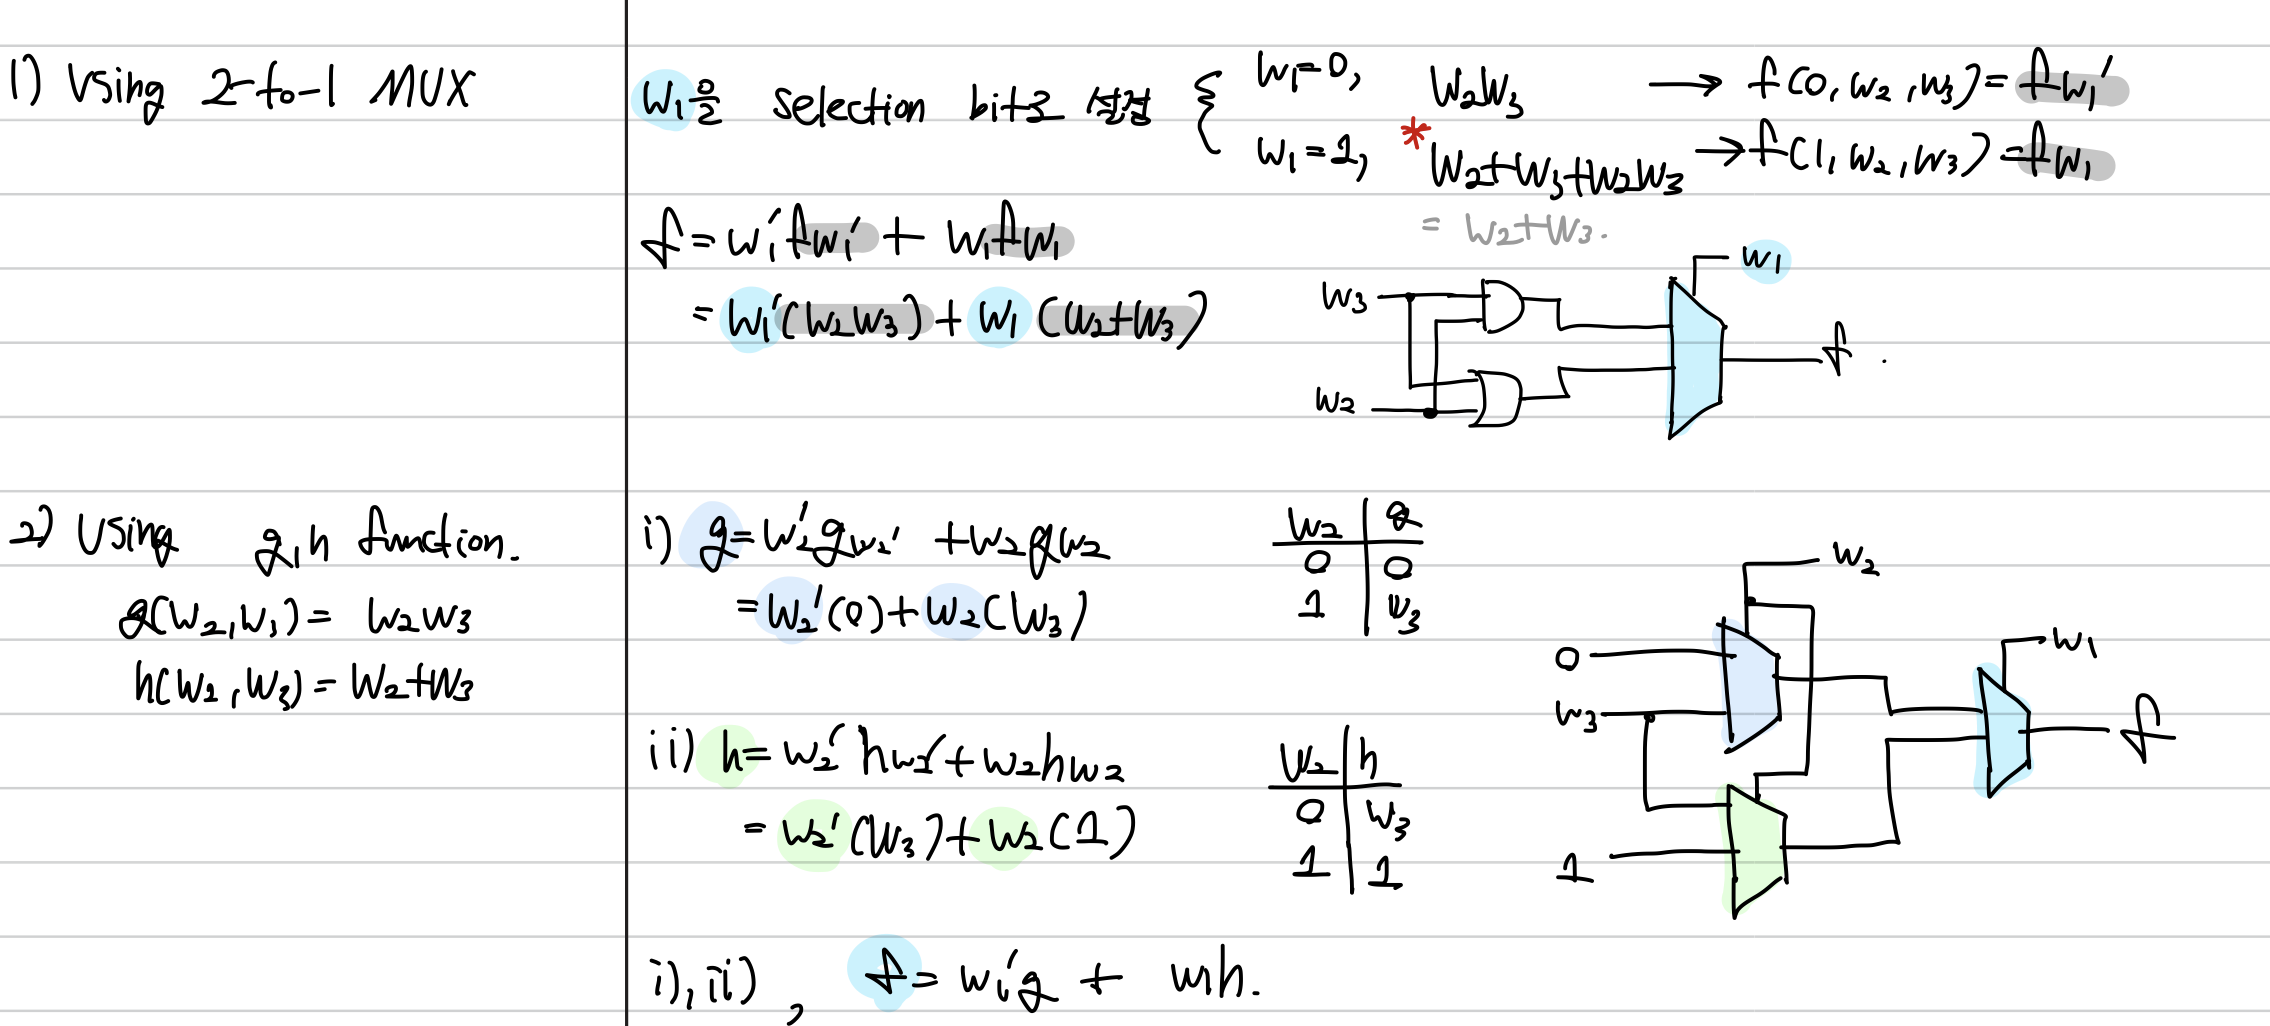 1) Using 2-to-1 MUX
w₁을 selection bit로 설정 { w₁=0, w₂w₃ → f(0, w₂, w₃) = fw₁'
w₁=1, * w₂+w₃+w₂w₃ → f(1, w₂, w₃) = fw₁
= w₂+w₃.
f = w₁'fw₁' + w₁fw₁
= w₁'(w₂w₃) + w₁(w₂+w₃)
w₁
w₃
f .
w₂
2) Using g, h function.
g(w₂, w₃) = w₂w₃
h(w₂, w₃) = w₂+w₃
i) g = w₂'gw₂' + w₂gw₂
= w₂'(0) + w₂(w₃)
w₂ g
0 0
1 w₃
ii) h = w₂'hw₂' + w₂hw₂
= w₂'(w₃) + w₂(1)
w₂ h
0 w₃
1 1
w₂
0
w₁
w₃
f
1
i), ii), f = w₁'g + w₁h.